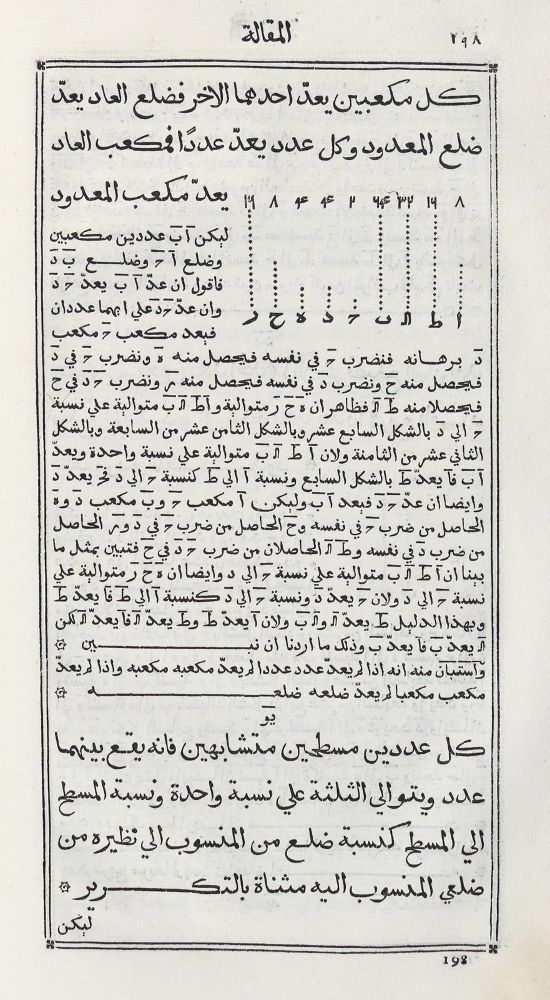 ١٩٨
المقالة
كل مكعبين يعدّ احدهما الاخر فضلع العاد يعدّ
ضلع المعدود وكل عدد يعدّ عددًا فمكعب العاد
يعدّ مكعب المعدود
٨ ١٦ ٣٢ ٦٤ ٢ ٤ ٤ ٨ ١٦
ليكن آ ب عددين مكعبين
وضلع آ ج وضلع ب د
فاقول ان عدّ آ ب يعدّ ج د
وان عدّ ج د علي انهما عددان
فيعد مكعب ج مكعب
ا ط ل ب ج د ه ح ر
د برهانه فنضرب ج في نفسه فيحصل منه ه ونضرب ج في د
فيحصل منه ح ونضرب د في نفسه فيحصل منه ر ونضرب ج د في ح
فيحصلا منه ط ل فظاهر ان ه ح ر متوالية و ا ط ل ب متوالية علي نسبة
ج الي د بالشكل السابع عشر وبالشكل الثامن عشر من السابعة وبالشكل
الثاني عشر من الثامنة ولان آ ط ل ب متوالية علي نسبة واحدة ويعدّ
آ ب فآ يعدّ ط بالشكل السابع ونسبة آ الي ط كنسبة ج الي د فج يعدّ د
وايضا ان عدّ ج د فيعد آ ب وليكن آ مكعب ج و ب مكعب د و ه
الحاصل من ضرب ج في نفسه و ح الحاصل من ضرب ج في د و ر الحاصل
من ضرب د في نفسه و ط ل الحاصلان من ضرب ج د في ح فتبين بمثل ما
بينا ان آ ط ل ب متوالية علي نسبة ج الي د وايضا ان ه ح ر متوالية علي
نسبة ج الي د ولان ج يعدّ د ونسبة ج الي د كنسبة آ الي ط فآ يعدّ ط
وبهذا الدليل ط يعدّ ل و ل ب ولان آ يعدّ ط و ط يعدّ ل فآ يعدّ ل لكن
ل يعدّ ب فآ يعدّ ب وذلك ما اردنا ان نبين
واستبان منه انه اذا لم يعدّ عدد عددا لم يعدّ مكعبه مكعبه واذا لم يعدّ
مكعب مكعبا لم يعدّ ضلعه ضلعه
يو
كل عددين مسطحين متشابهين فانه يقع بينهما
عدد ويتوالي الثلثة علي نسبة واحدة ونسبة المسطح
الي المسطح كنسبة ضلع من المنسوب الي نظيره من
ضلعي المنسوب اليه مثناة بالتكرير
ليكن
198